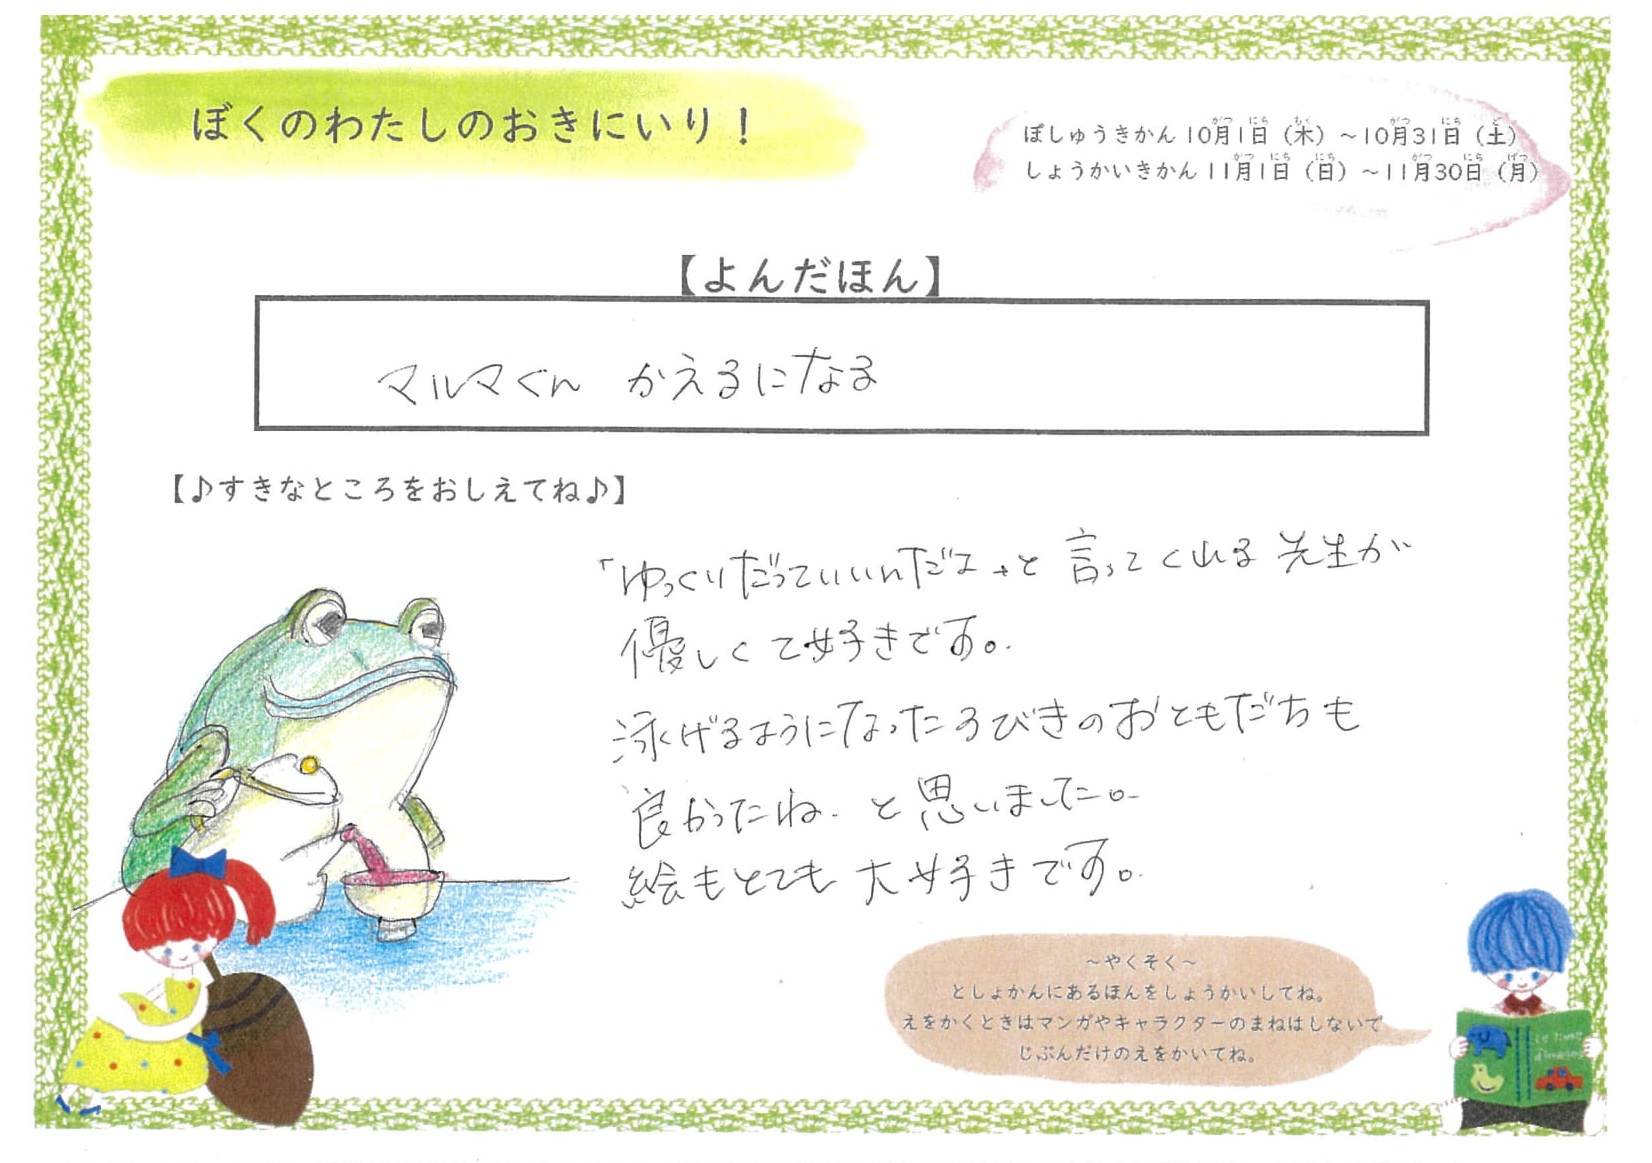 ぼくのわたしのおきにいり！
ぼしゅうきかん 10月1日（木）～10月31日（土）
しょうかいきかん 11月1日（日）～11月30日（月）
【よんだほん】
マルマくん かえるになる
【♪すきなところをおしえてね♪】
「ゆっくりだっていいんだよ」と言ってくれる先生が
優しくて好きです。
泳げるようになったるびきのおともだちも
良かったね、と思いました。
絵もとても大好きです。
～やくそく～
としょかんにあるほんをしょうかいしてね。
えをかくときはマンガやキャラクターのまねはしないで
じぶんだけのえをかいてね。